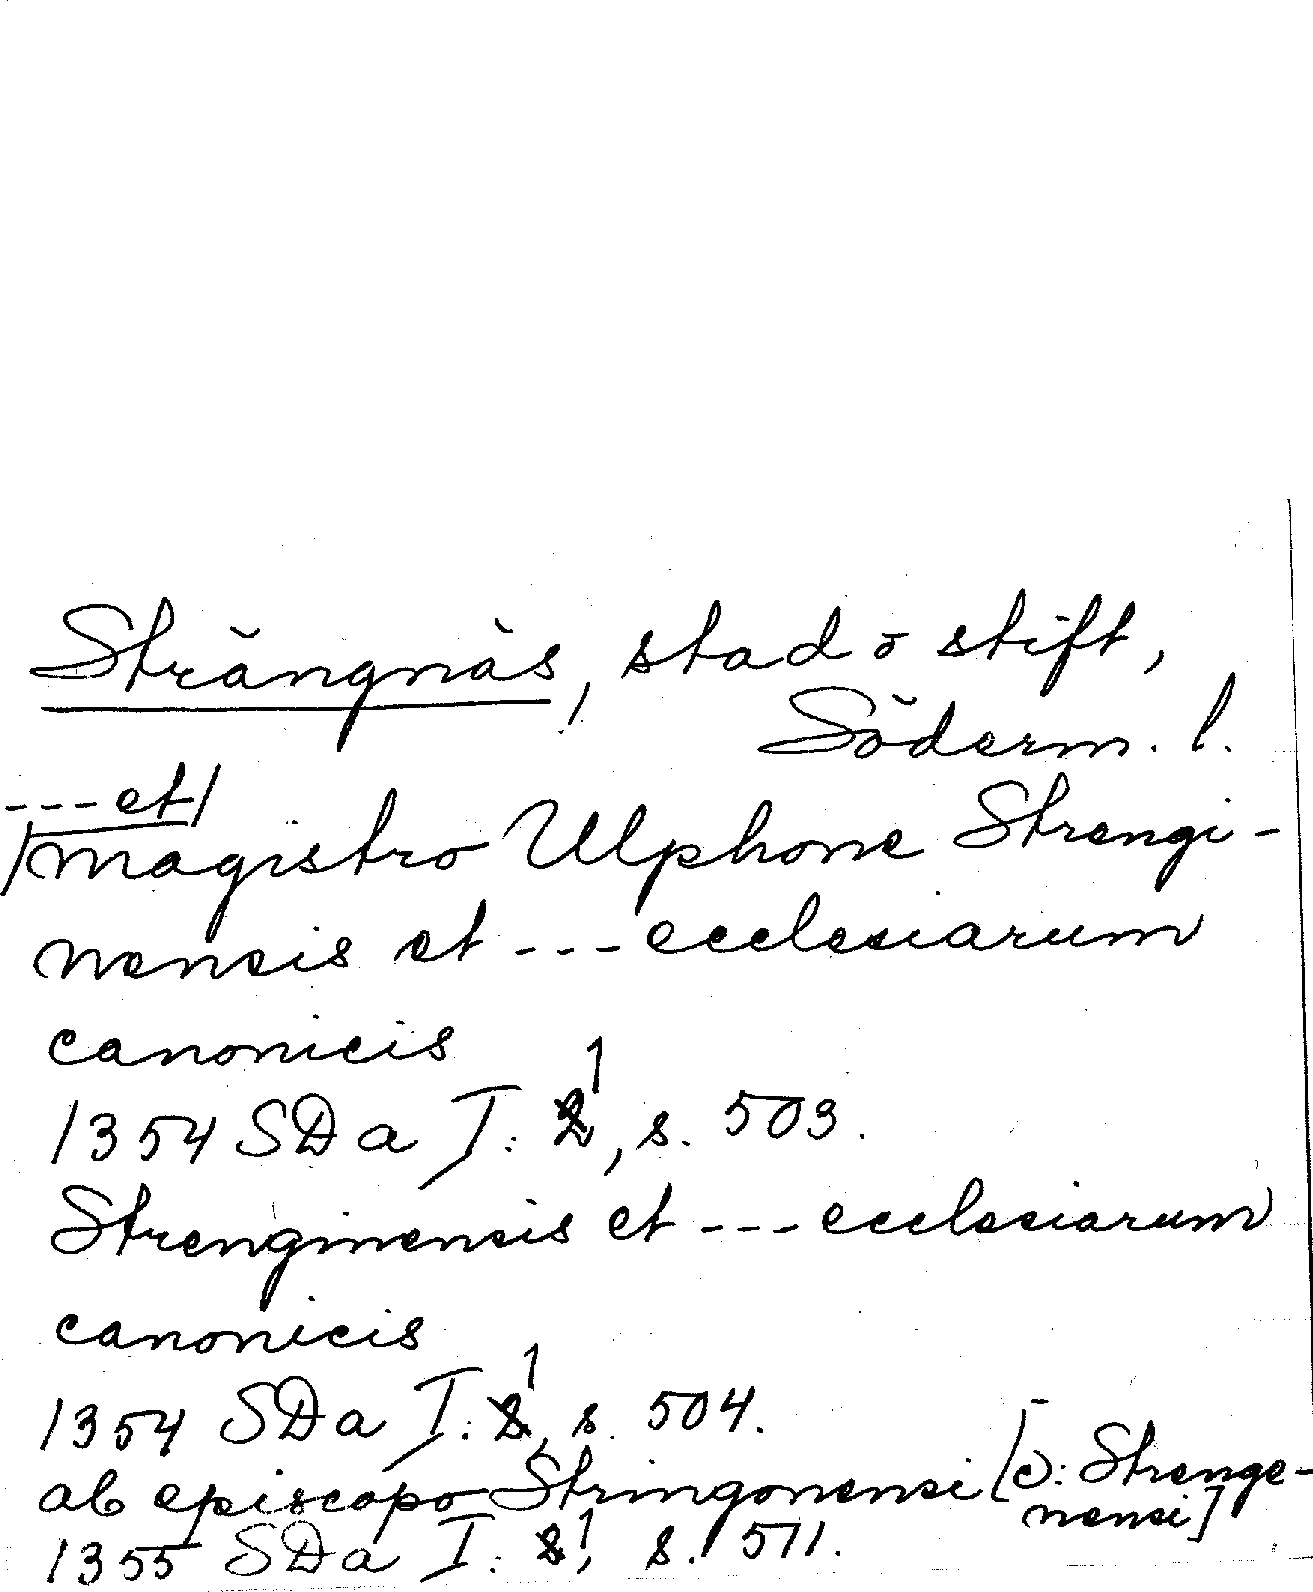 Strängnäs, stad o stift,
Söderm. l.
--- et/
/magistro Ulphone Strengi-
nensis et --- ecclesiarum
canonicis
1354 SDa I: 1, s. 503.
Strenginensis et --- ecclesiarum
canonicis
1354 SDa I: 1, s. 504.
ab episcopo Stringonensi [ɔ: Strenge-
nensi]
1355 SDa I: 1, s. 511.